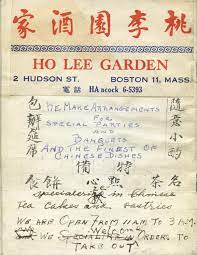 桃李園酒家
HO LEE GARDEN
2 HUDSON ST. BOSTON 11, MASS
電話 HAncock 6-5393
隨意小酌
包辦筵席
WE MAKE ARRANGEMENTS
FOR
SPECIAL PARTIES
AND
BANQUETS
AND THE FINEST OF
CHINESE DISHES
特備
名茶點心
specializing in Chinese
Tea Cakes and Pastries
WE ARE OPEN FROM 11 AM TO 3 A.M.
Welcome
WE SPECIALIZING IN ORDERS TO
TAKE OUT!